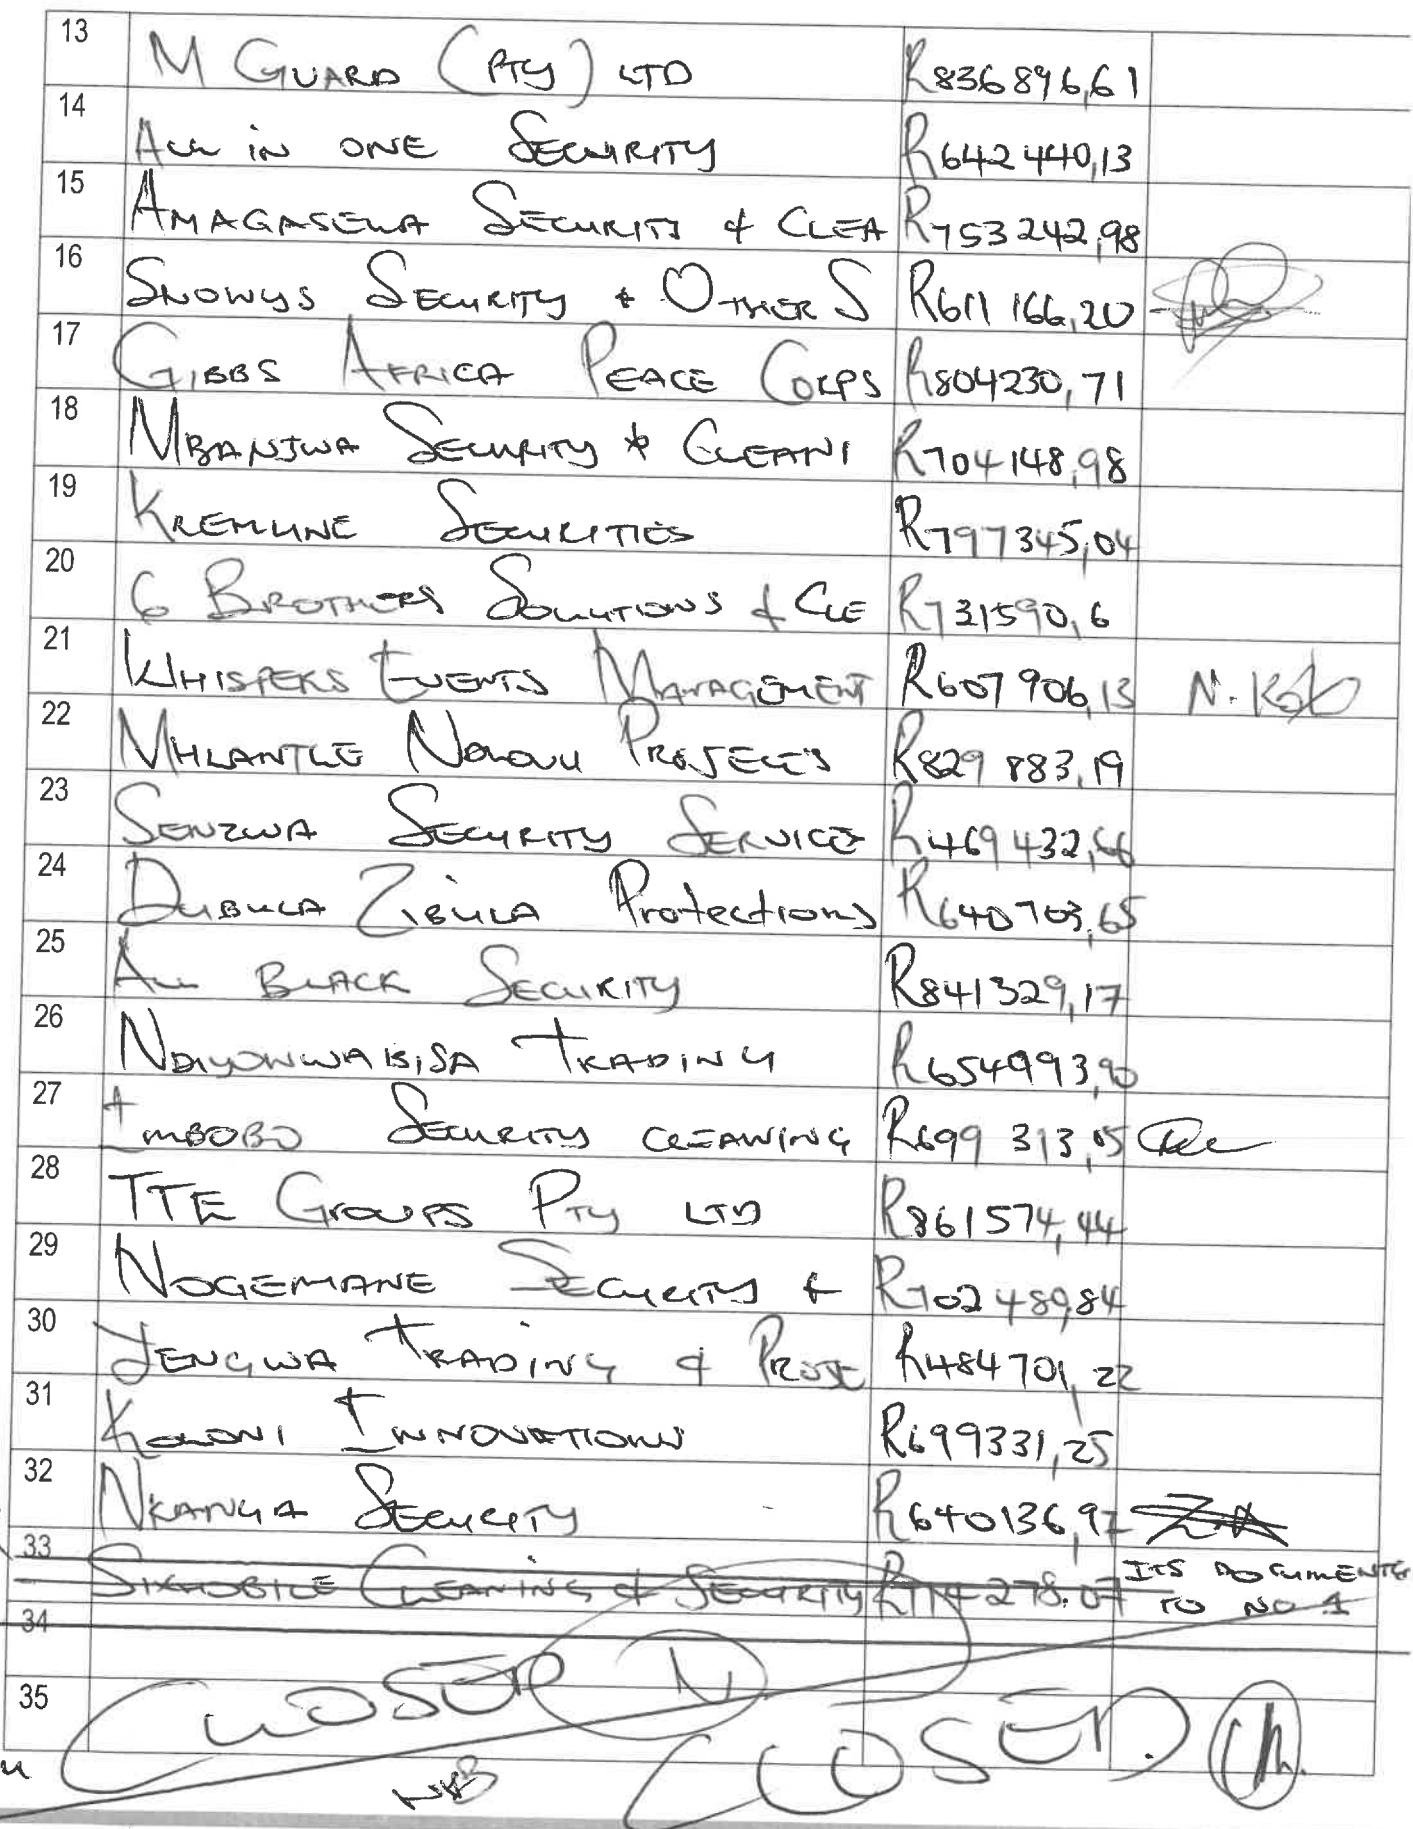 13 M GUARD (PTY) LTD R836896,61
14 ALL IN ONE SECURITY R642440,13
15 AMAGASELA SECURITY & CLEA R753242,98
16 SNOWYS SECURITY & OTHER S R611 166,20
17 GIBBS AFRICA PEACE CORPS R804230,71
18 MBANJWA SECURITY & CLEANI R704148,98
19 KREMLINE SECURITIES R797345,04
20 6 BROTHERS SOLUTIONS & CLE R731590,6
21 WHISPERS EVENTS MANAGEMENT R607 906,13 N.
22 MHLANTLE NDLOVU PROJECTS R829 883,19
23 SENZWA SECURITY SERVICE R469 432,66
24 DUBULA ZIBULA Protections R640703,65
25 ALL BLACK SECURITY R841329,17
26 NDIYONWABISA TRADING R654993,90
27 IMBOBO SECURITY CLEANING R699 313,05
28 TTE GROUPS PTY LTD R861574,44
29 NOGEMANE SECURITY & R702489,84
30 JENGWA TRADING & PROJE R484701,22
31 KOLONI INNOVATIONS R699331,25
32 NKANGA SECURITY R640136,97
33 CLEANING & SECURITY R714278.07 ITS DOCUMENTS
TO NO 1
34
35 CLOSED N CLOSED.